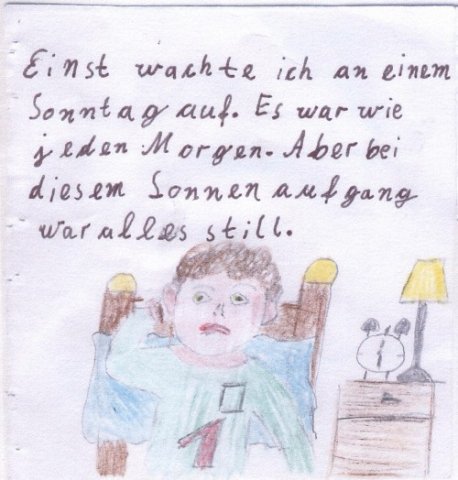 Einst wachte ich an einem
Sonntag auf. Es war wie
jeden Morgen. Aber bei
diesem Sonnenaufgang
war alles still.
1